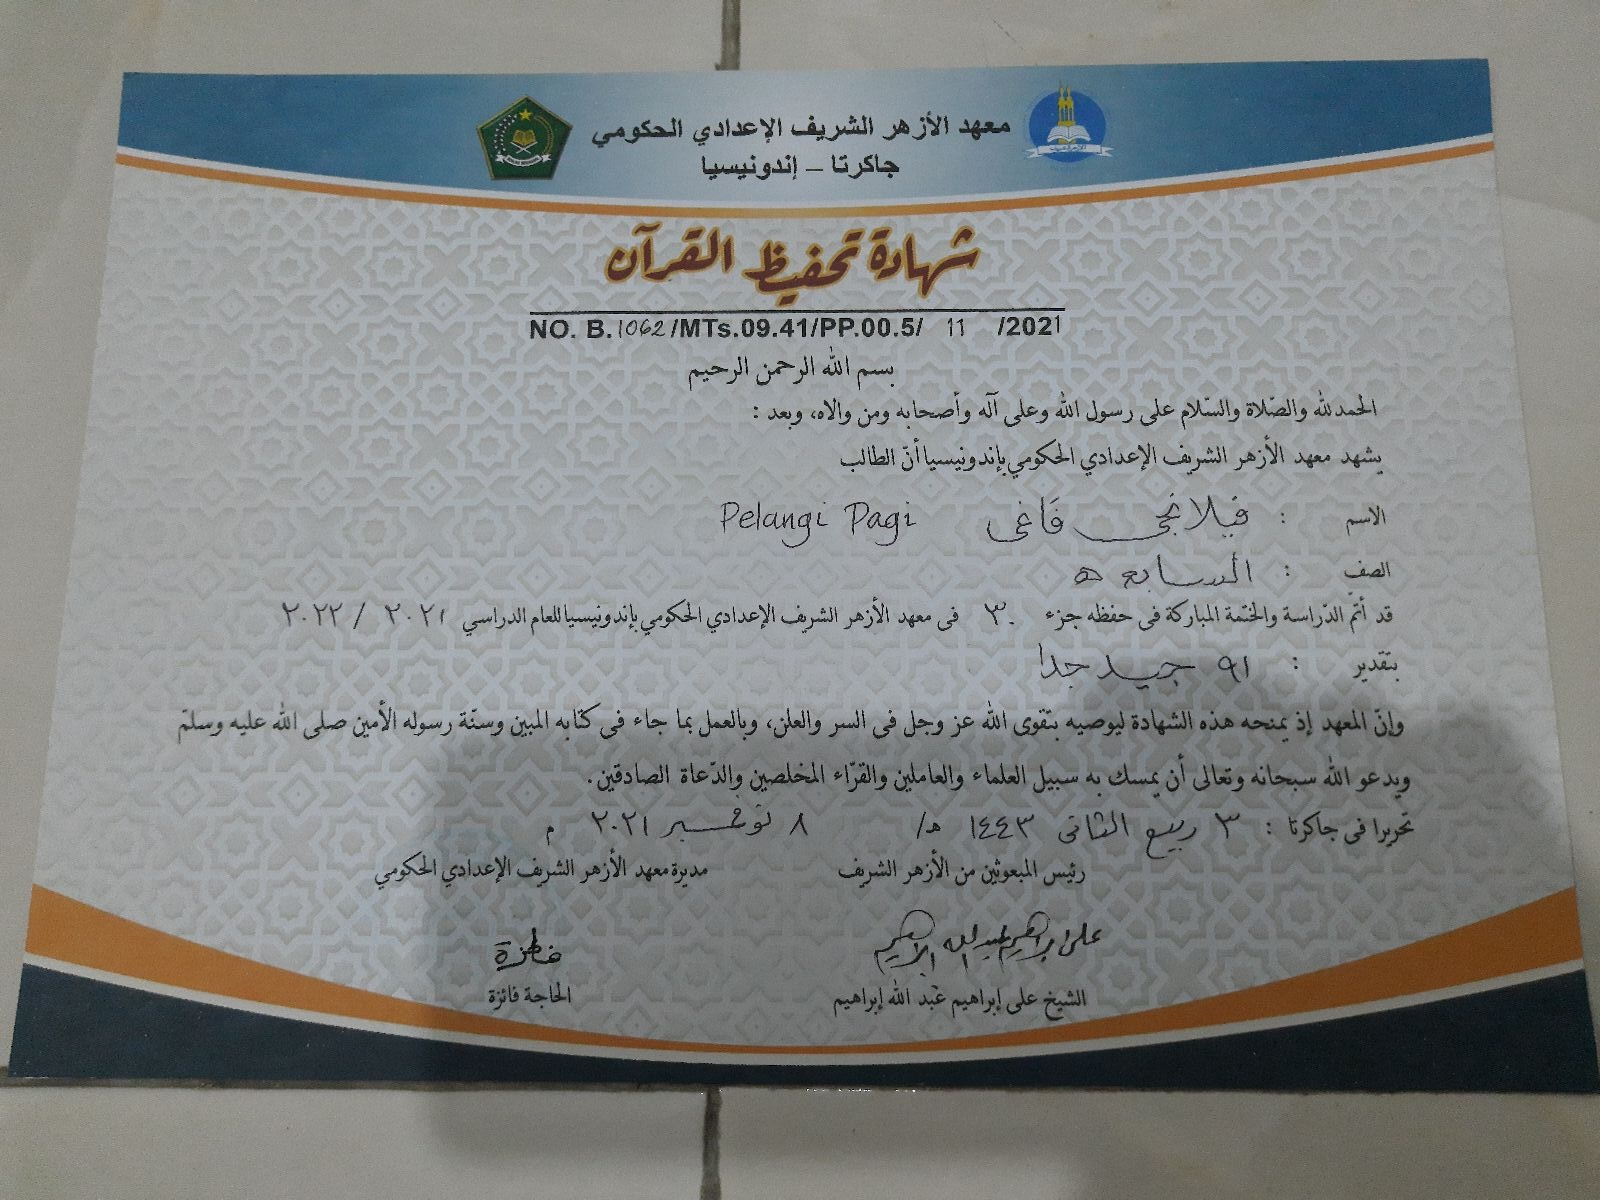 معهد الأزهر الشريف الإعدادي الحكومي
جاكرتا – إندونيسيا
شهادة تحفيظ القرآن
NO. B.1062/MTs.09.41/PP.00.5/ 11 /2021
بسم الله الرحمن الرحيم
الحمد لله والصّلاة والسّلام على رسول الله وعلى آله وأصحابه ومن والاه، وبعد :
يشهد معهد الأزهر الشريف الإعدادي الحكومي بإندونيسيا أنّ الطالب
الاسم : فيلانجى فاغى Pelangi Pagi
الصف : السابع ه
قد أتمّ الدّراسة والختمة المباركة فى حفظه جزء ٣٠ فى معهد الأزهر الشريف الإعدادي الحكومي بإندونيسيا للعام الدراسي ٢٠٢١ / ٢٠٢٢
بتقدير : ٩١ جيد جدا
وإنّ المعهد إذ يمنحه هذه الشهادة ليوصيه بتقوى الله عز وجل فى السر والعلن، وبالعمل بما جاء فى كتابه المبين وسنّة رسوله الأمين صلى الله عليه وسلّم
ويدعو الله سبحانه وتعالى أن يمسك به سبيل العلماء والعاملين والقرّاء المخلصين والدّعاة الصادقين.
تحريرا فى جاكرتا : ٣ ربيع الثانى ١٤٤٣ هـ/ ٨ نوفمبر ٢٠٢١ م
رئيس المبعوثين من الأزهر الشريف
مديرة معهد الأزهر الشريف الإعدادي الحكومي
على إبراهيم عبد الله إبراهيم
فائزة
الشيخ على إبراهيم عبد الله إبراهيم
الحاجة فائزة